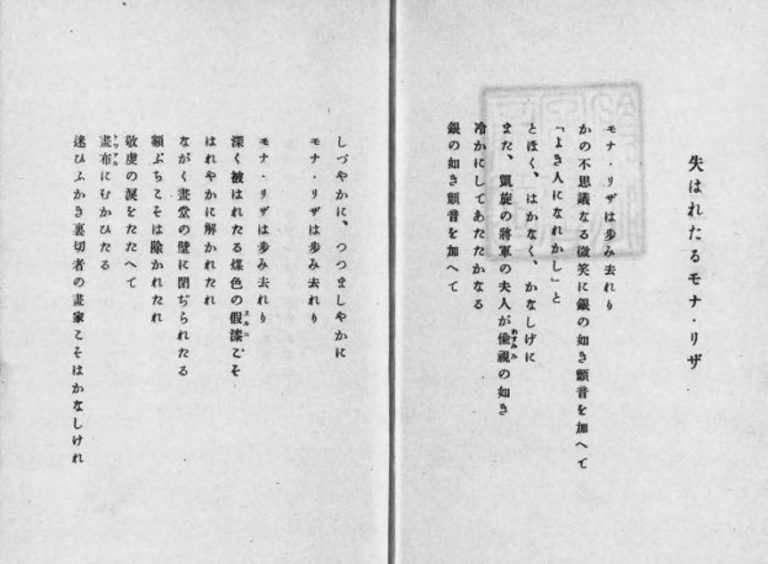 失はれたるモナ・リザ
モナ・リザは歩み去れり
かの不思議なる微笑に銀の如き顫音を加へて
「よき人になれかし」と
とほく、はかなく、かなしげに
また、凱旋の將軍の夫人が偸視の如き
冷かにしてあたたかなる
銀の如き顫音を加へて
しづやかに、つつましやかに
モナ・リザは歩み去れり
モナ・リザは歩み去れり
深く被はれたる煤色の假漆こそ
はれやかに解かれたれ
ながく畫堂の壁に閉ぢられたる
額ぶちこそは除かれたれ
敬虔の涙をたたへて
畫布にむかひたる
迷ひふかき裏切者の畫家こそはかなしけれ